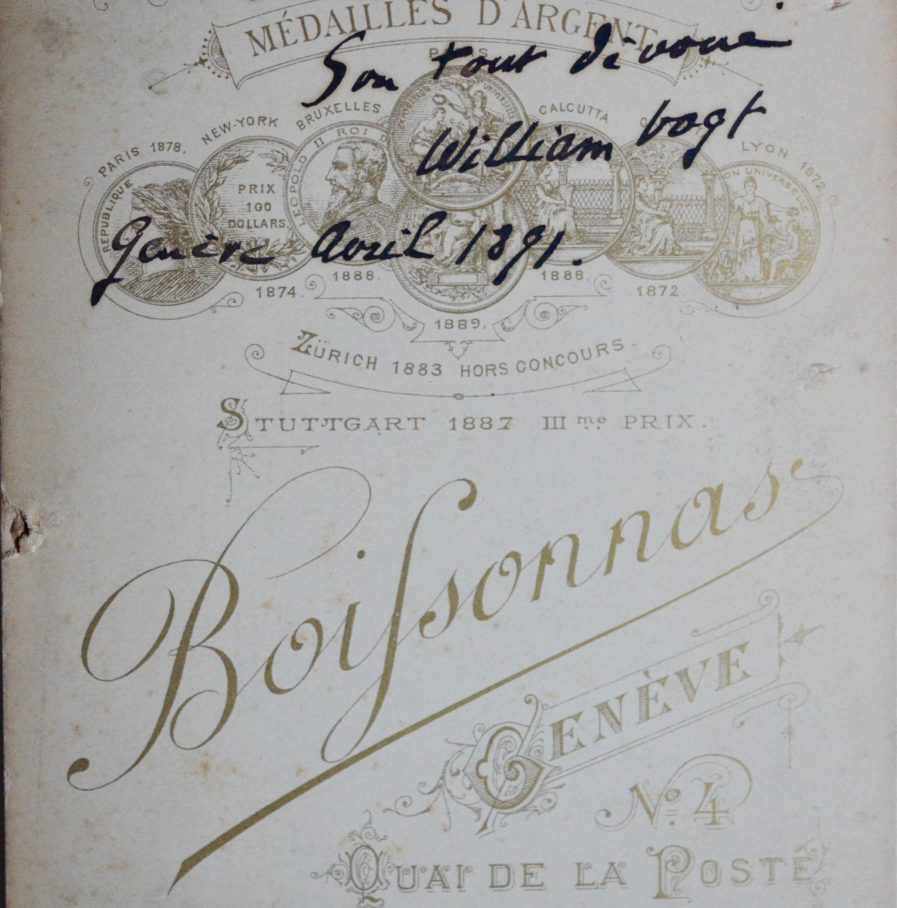 MÉDAILLES D'ARGENT
Son tout dévoué
PARIS
William Vogt
PARIS 1878. NEW-YORK BRUXELLES CALCUTTA LYON 1872
RÉPUBLIQUE
PRIX
100
DOLLARS
LEOPOLD II ROI D
UNIVERSELLE
Genève Avril 1891.
1874. 1888. 1888. 1872.
1889.
ZÜRICH 1883 HORS CONCOURS
STUTTGART 1887 III me PRIX.
Boissonnas
GENÈVE
No. 4
QUAI DE LA POSTE